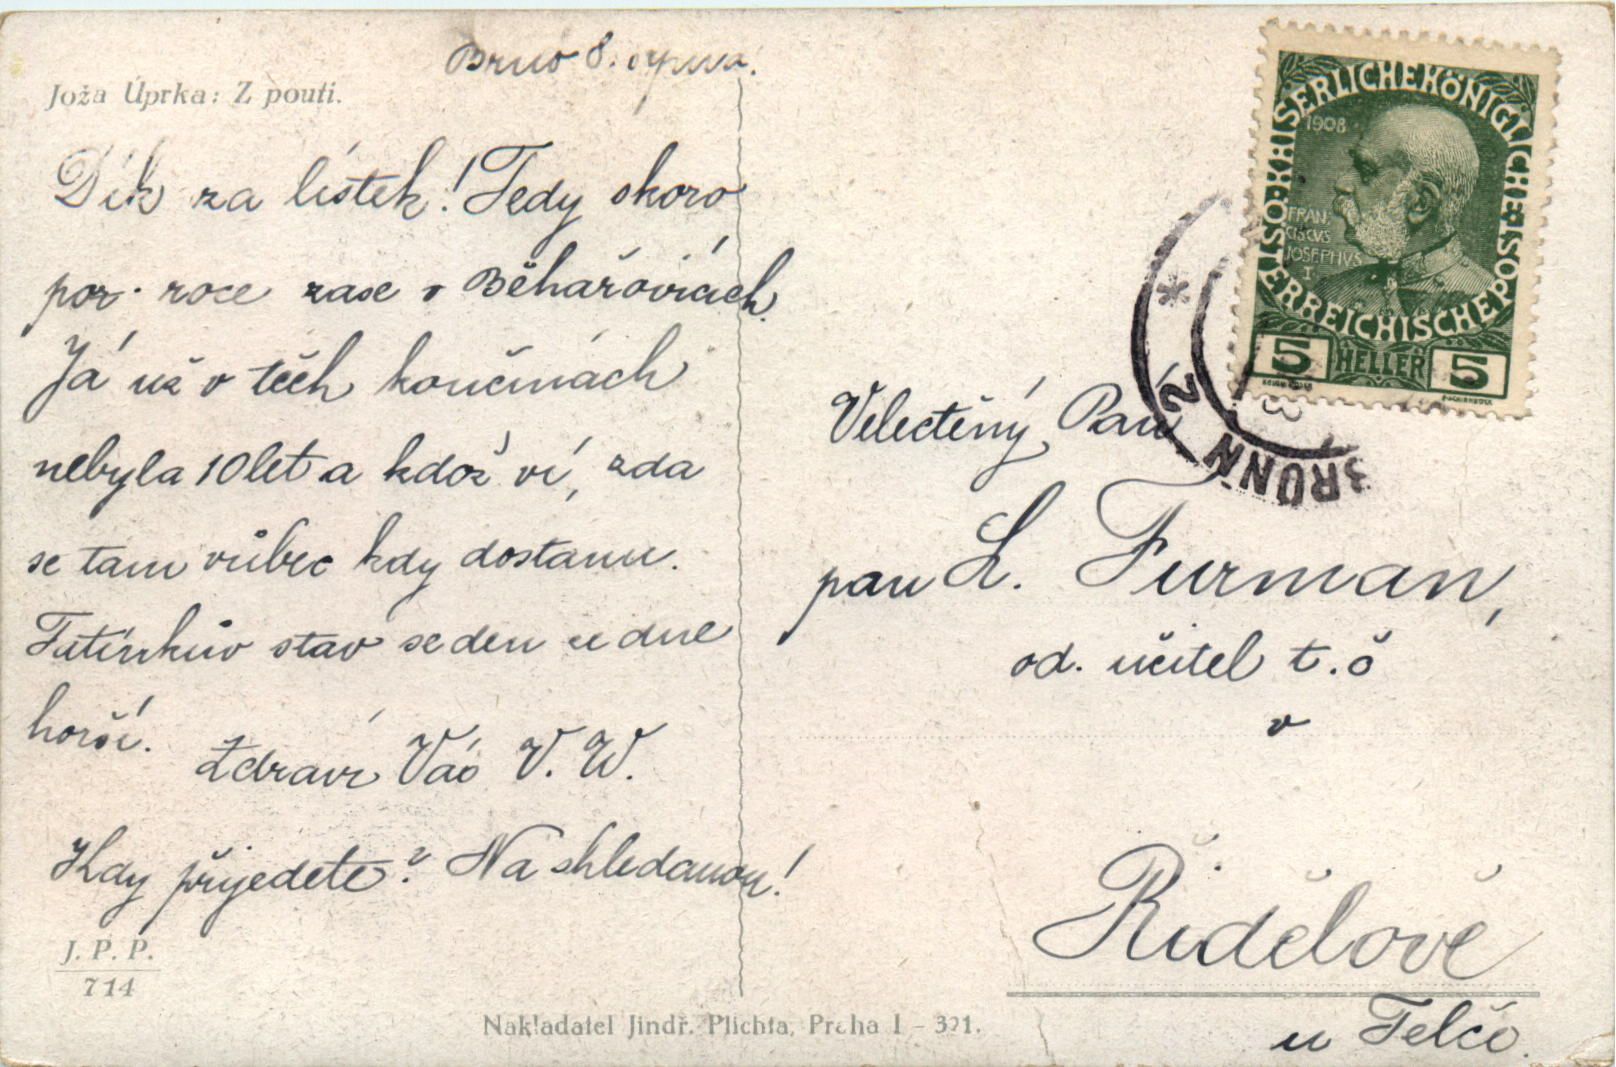 Brno 8. srpna.
Joža Úprka: Z pouti.
Dík za lístek! Tedy skoro
po r. roce zase v Běhařovicích.
Já už v těch končinách
nebyla 10 let a kdož ví, zda
se tam vůbec kdy dostanu.
Tatínkův stav se den ze dne
horší.
Zdraví Vás V. W.
Kdy přijedete? Na shledanou!
J. P. P.
714
Nakladatel Jindř. Plichta, Praha I - 321.
KAISERLICHE KÖNIGLICHE ÖSTERREICHISCHE POST
1908
FRAN
CISCVS
JOSEPHVS
I
5 HELLER 5
BRÜNN 2
Velectěný Pan
pan L. Furman,
od. učitel t. č
v
Řídelově
u Telče.